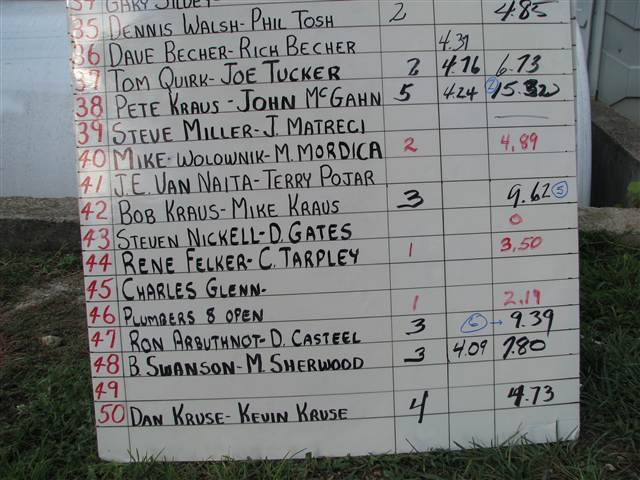 34 GARY
35 DENNIS WALSH-PHIL TOSH 2 4.85
36 DAVE BECHER-RICH BECHER 4.39
37 TOM QUIRK-JOE TUCKER 2 4.76 6.73
38 PETE KRAUS-JOHN MCGAHN 5 4.24 2
39 STEVE MILLER-J. MATRECI
40 MIKE-WOLOWNIK-M. MORDICA 2 4.89
41 J.E. VAN NAITA-TERRY POJAR
42 BOB KRAUS-MIKE KRAUS 3 9.62 5
43 STEVEN NICKELL-D. GATES 0
44 RENE FELKER-C. TARPLEY 1 3.50
45 CHARLES GLENN-
46 PLUMBERS 8 OPEN 1 2.19
47 RON ARBUTHNOT-D. CASTEEL 3 6 → 9.39
48 B. SWANSON-M. SHERWOOD 3 4.09 7.80
49
50 DAN KRUSE-KEVIN KRUSE 4 4.73